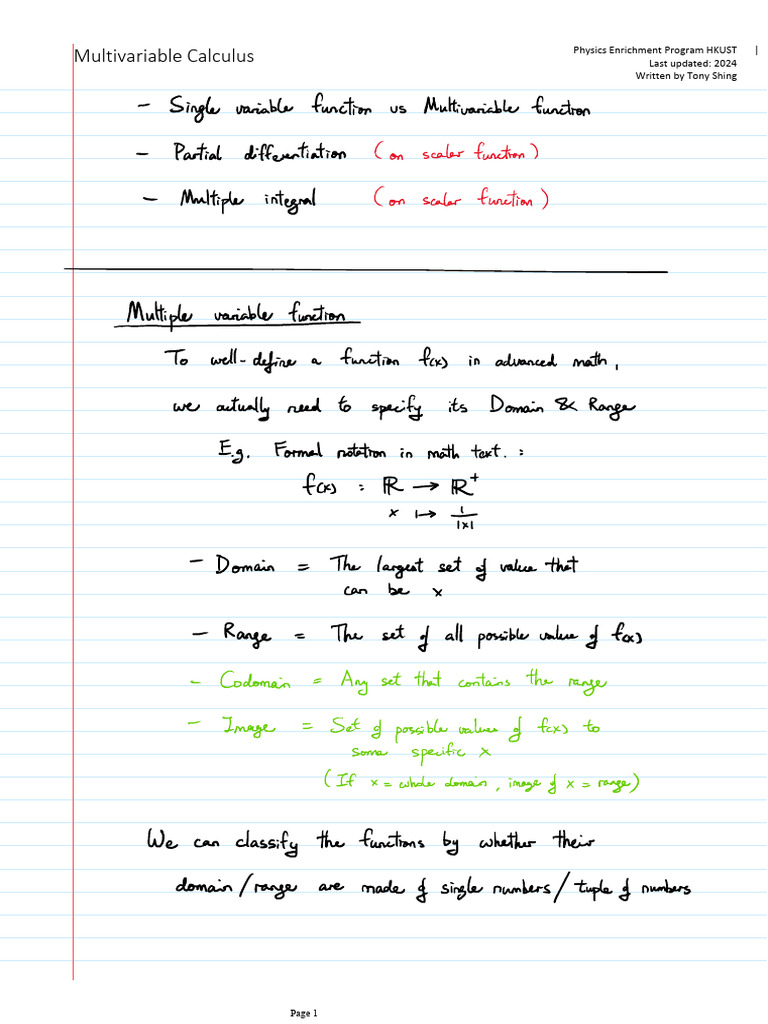 Multivariable Calculus
Physics Enrichment Program HKUST | 
Last updated: 2024
Written by Tony Shing
- Single variable function vs Multivariable function
- Partial differentiation (on scalar function)
- Multiple integral (on scalar function)
Multiple variable function
To well-define a function f(x) in advanced math,
we actually need to specify its Domain & Range
E.g. Formal notation in math text. :
f(x) : ℝ → ℝ⁺
x ↦ 1/|x|
- Domain = The largest set of value that
can be x
- Range = The set of all possible value of f(x)
- Codomain = Any set that contains the range
- Image = Set of possible values of f(x) to
some specific x
(If x = whole domain, image of x = range)
We can classify the functions by whether their
domain/range are made of single numbers/tuple of numbers
Page 1